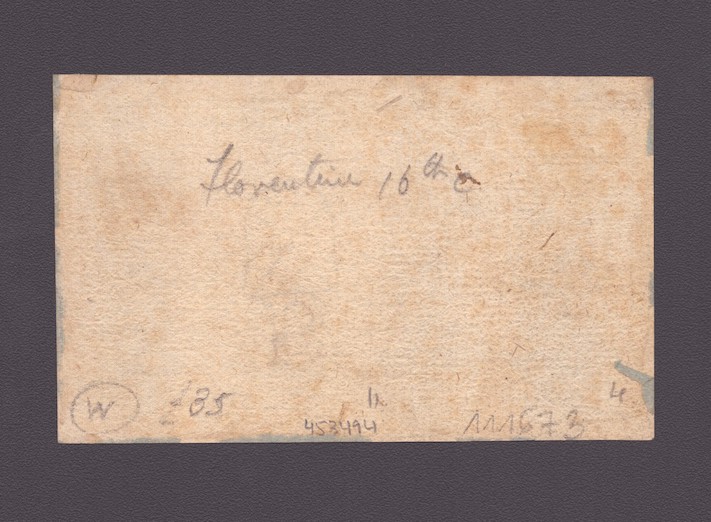 Florentine 16th c
4
W -35 1x
453494 111673